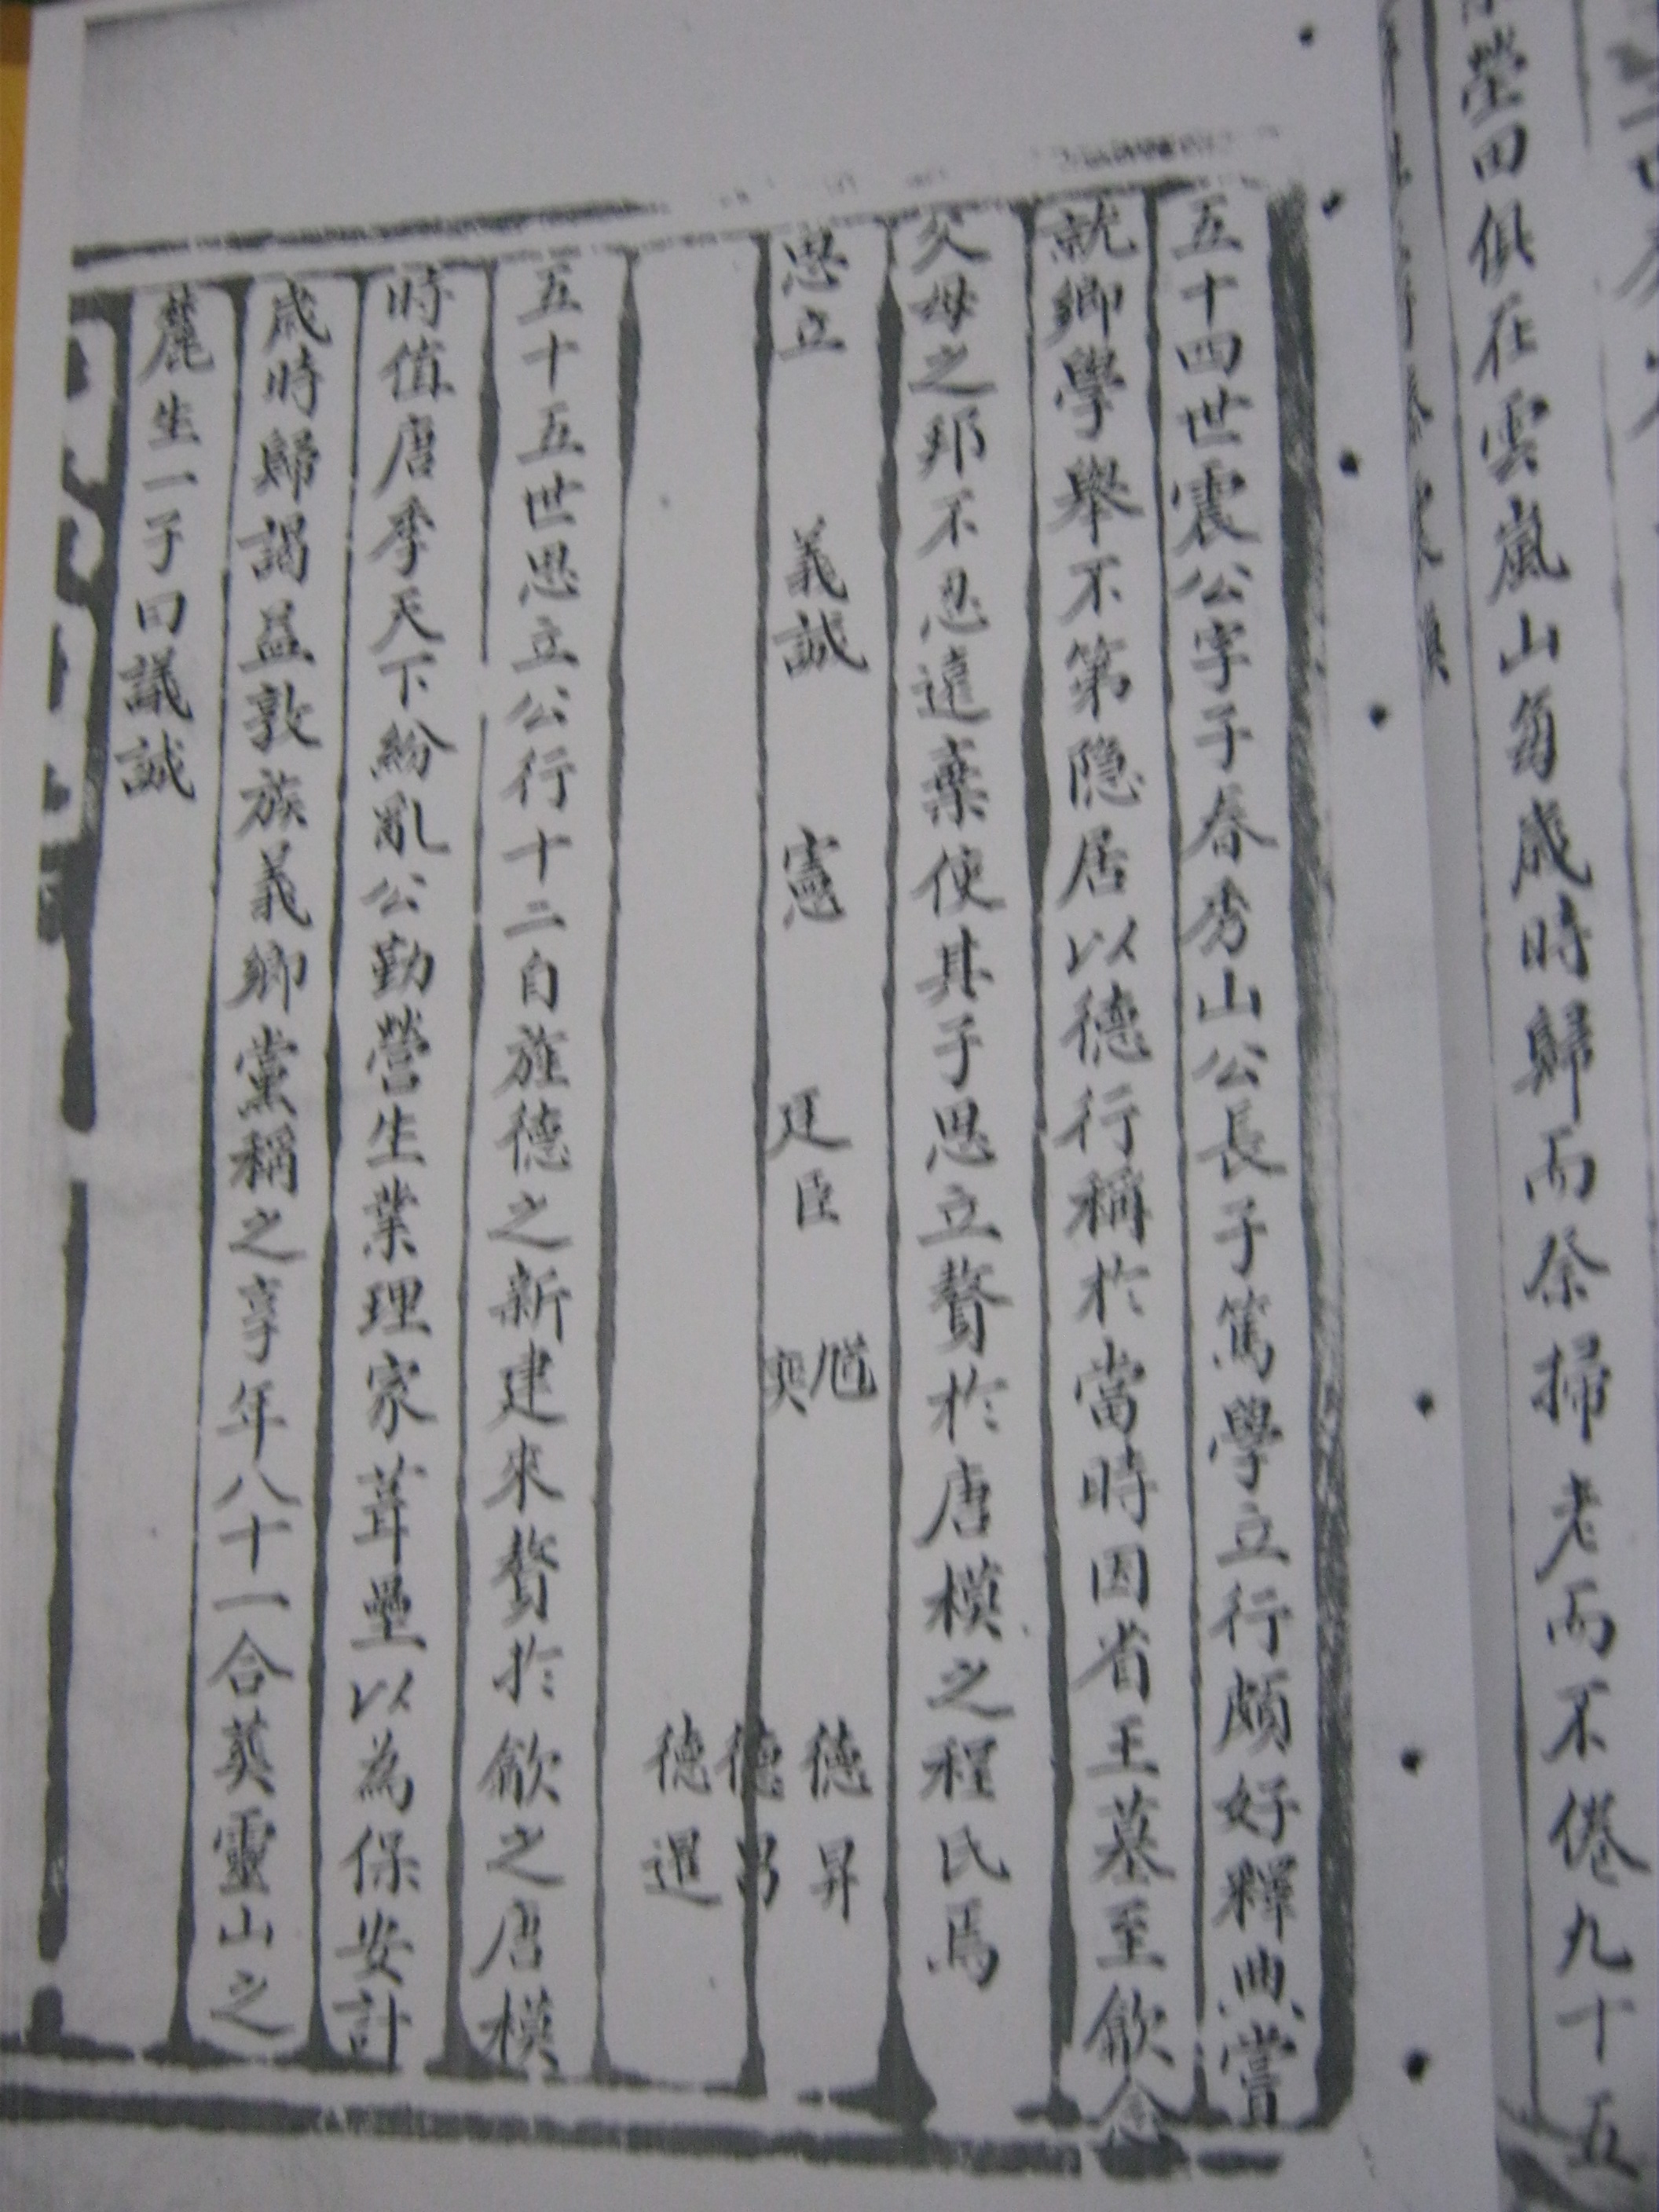 塋田俱在雲嵐山匊歲時歸而祭掃老而不倦九十五
五十四世震公字子春秀山公長子篤學立行頗好釋典嘗
就鄉學舉不第隐居以德行稱於當時因省王墓至歙念
父母之邦不忍遠棄使其子思立贅於唐模之程氏焉
思立 義誠 憲 廷臣 奭 德昇 德 德暹
五十五世思立公行十二自旌德之新建來贅於歙之唐模
時值唐季天下紛亂公勤營生業理家葺壘以為保安計
歲時歸謁益敦族義鄉黨稱之享年八十一合葬靈山之
麓生一子曰議誠